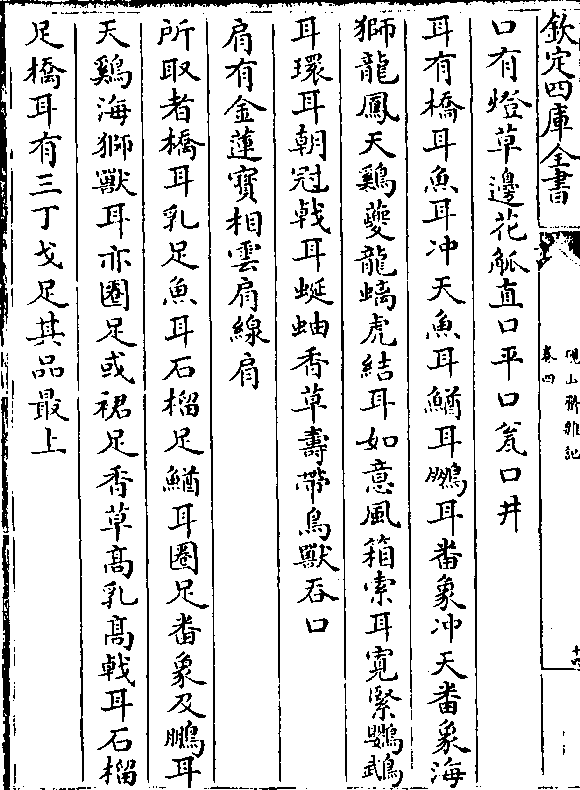 欽定四庫全書
硯山齋雜記
卷四
口有燈草邊花觚直口平口瓮口井
耳有橋耳魚耳冲天魚耳鰌耳鵬耳畨象冲天畨象海
獅龍鳳天鷄夔龍螭虎結耳如意風箱索耳寛緊鸚鵡
耳環耳朝冠戟耳蜒蚰香草壽帶鳥獸吞口
肩有金蓮寳相雲肩線肩
所取者橋耳乳足魚耳石榴足鰌耳圈足畨象及鵬耳
天鷄海獅獸耳亦圈足或裙足香草髙乳髙戟耳石榴
足橋耳有三丁戈足其品最上